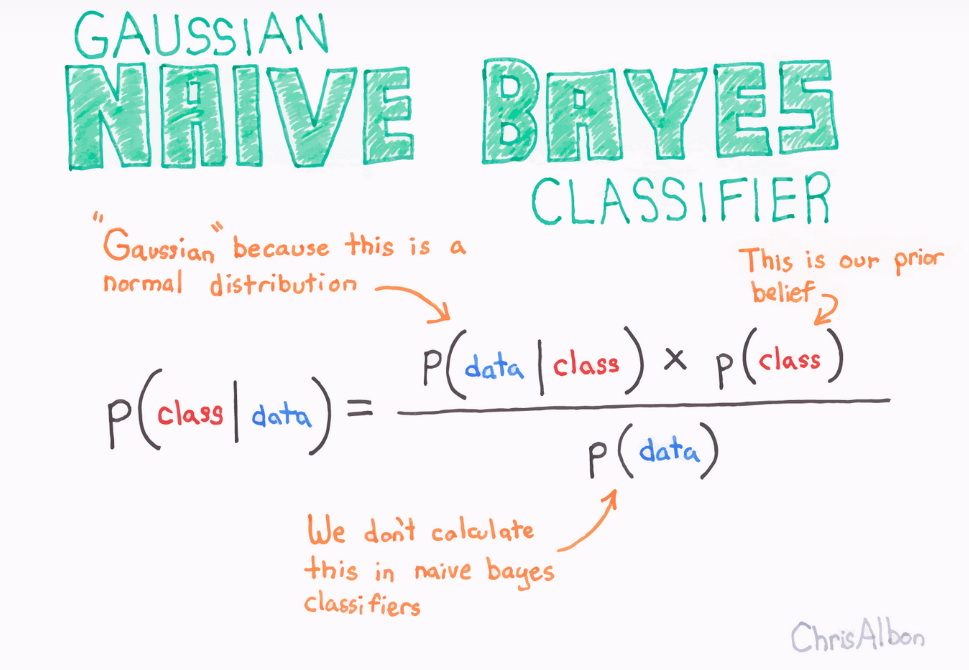 GAUSSIAN
NAIVE BAYES
CLASSIFIER
"Gaussian" because this is a
normal distribution
This is our prior
belief
P(data | class) x p(class)
p(class | data) =
p(data)
We don't calculate
this in naive bayes
classifiers
ChrisAlbon